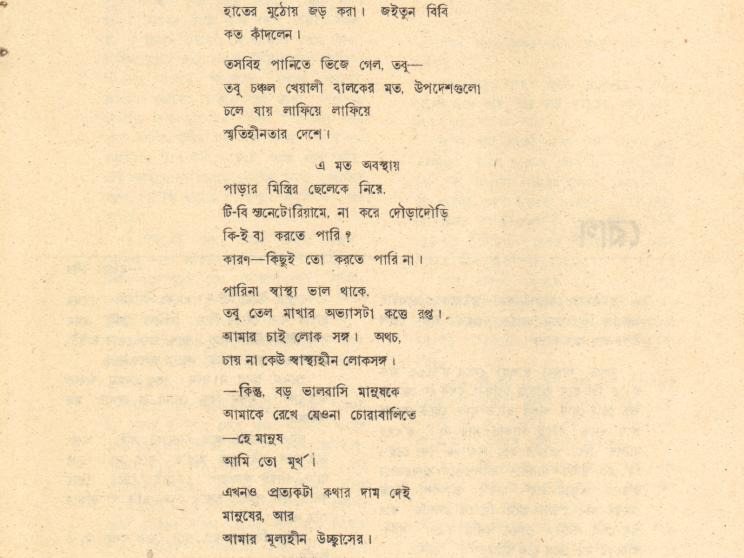 হাতের মুঠোয় জড় করা। জইতুন বিবি
কত কাঁদলেন।
তসবিহ পানিতে ভিজে গেল, তবু—
তবু চঞ্চল খেয়ালী বালকের মত, উপদেশগুলো
চলে যায় লাফিয়ে লাফিয়ে
স্মৃতিহীনতার দেশে।
এ মত অবস্থায়
পাড়ার মিস্ত্রির ছেলেকে নিয়ে,
টি-বি স্যানেটোরিয়ামে, না করে দৌড়াদৌড়ি
কি-ই বা করতে পারি?
কারণ—কিছুই তো করতে পারি না।
পারিনা স্বাস্থ্য ভাল থাকে,
তবু তেল মাখার অভ্যাসটা কত্তে রপ্ত।
আমার চাই লোক সঙ্গ। অথচ,
চায় না কেউ স্বাস্থ্যহীন লোকসঙ্গ।
—কিন্তু, বড় ভালবাসি মানুষকে
আমাকে রেখে যেওনা চোরাবালিতে
—হে মানুষ
আমি তো মূর্খ।
এখনও প্রত্যকটা কথার দাম দেই
মানুষের, আর
আমার মূল্যহীন উচ্ছ্বাসের।